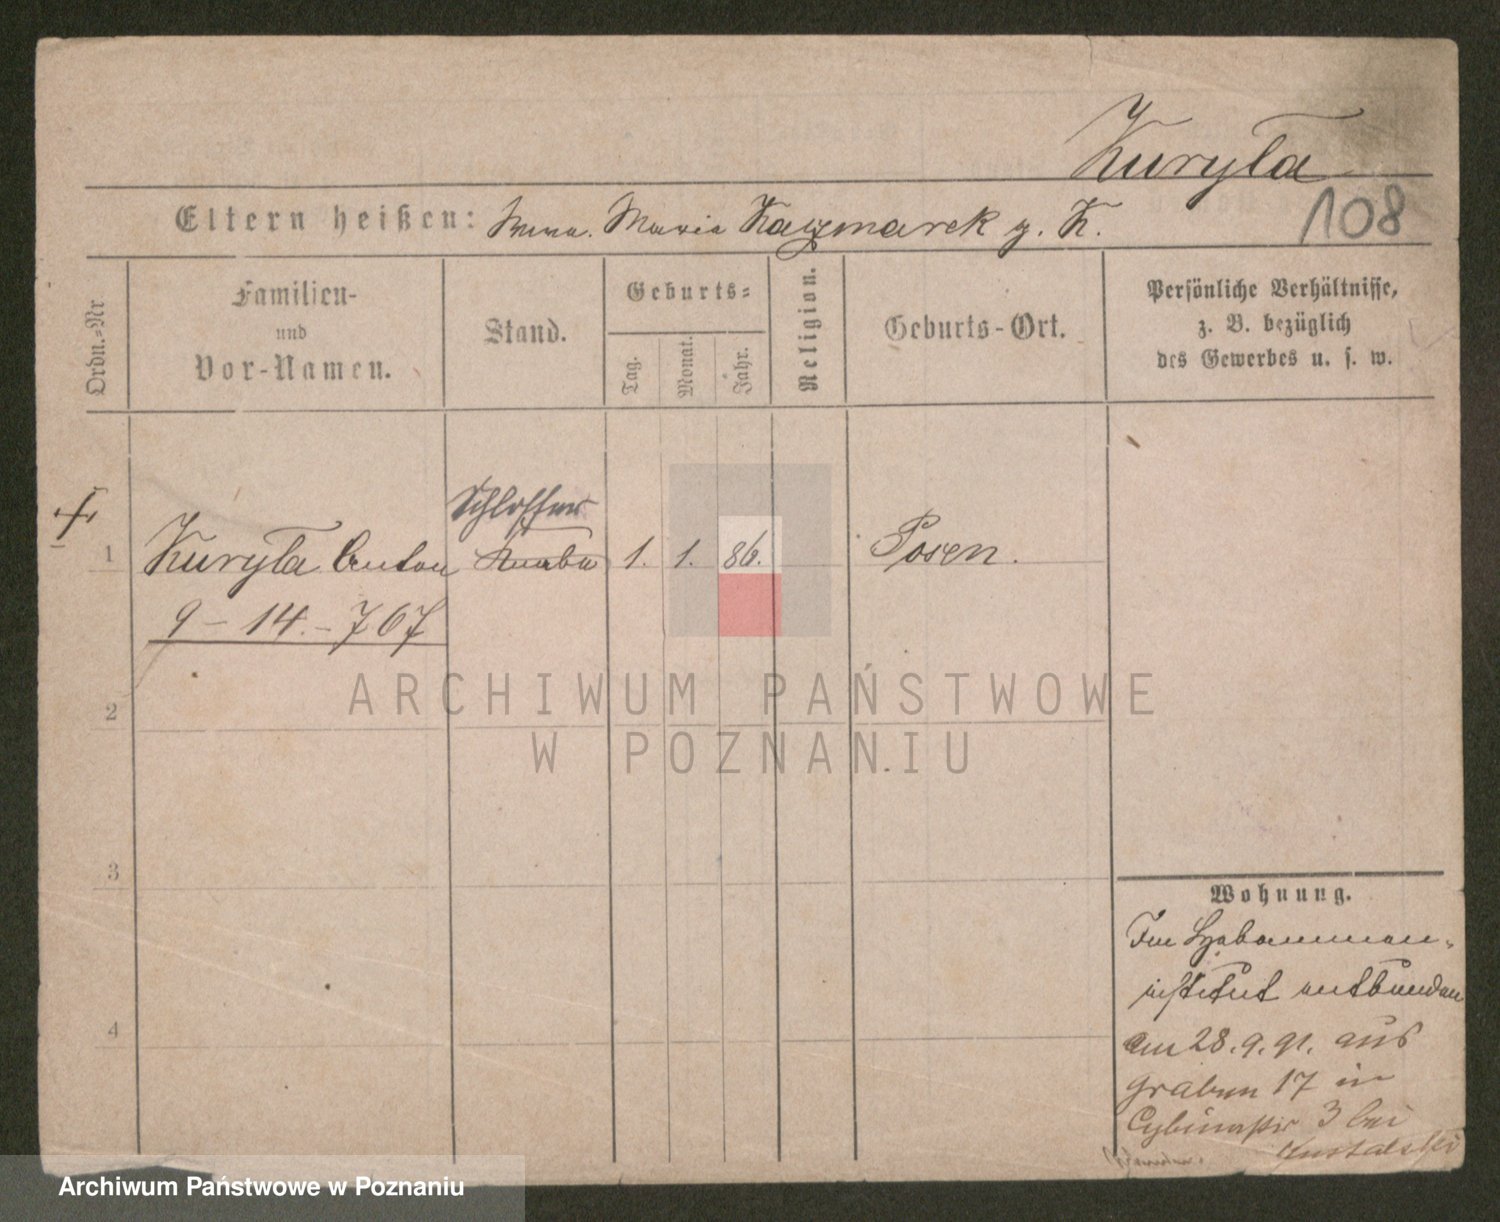 Kuryła
Eltern heißen: Maria Kaczmarek g. K.
108
Ordn.-Nr
Familien-
und
Vor-Namen.
Stand.
Geburts-
Tag.
Monat.
Jahr.
Religion.
Geburts-Ort.
Persönliche Verhältnisse,
z. B. bezüglich
des Gewerbes u. s. w.
Schlosser
1 Kuryła Anton Knabe 1. 1. 86. Posen.
9-14.-767
2
3
4
ARCHIWUM PAŃSTWOWE
W POZNANIU
Wohnung.
Im Hebammen-
institut entbunden
am 28.9.91. aus
Graben 17 in
Cybinastr 3 bei
Archiwum Państwowe w Poznaniu